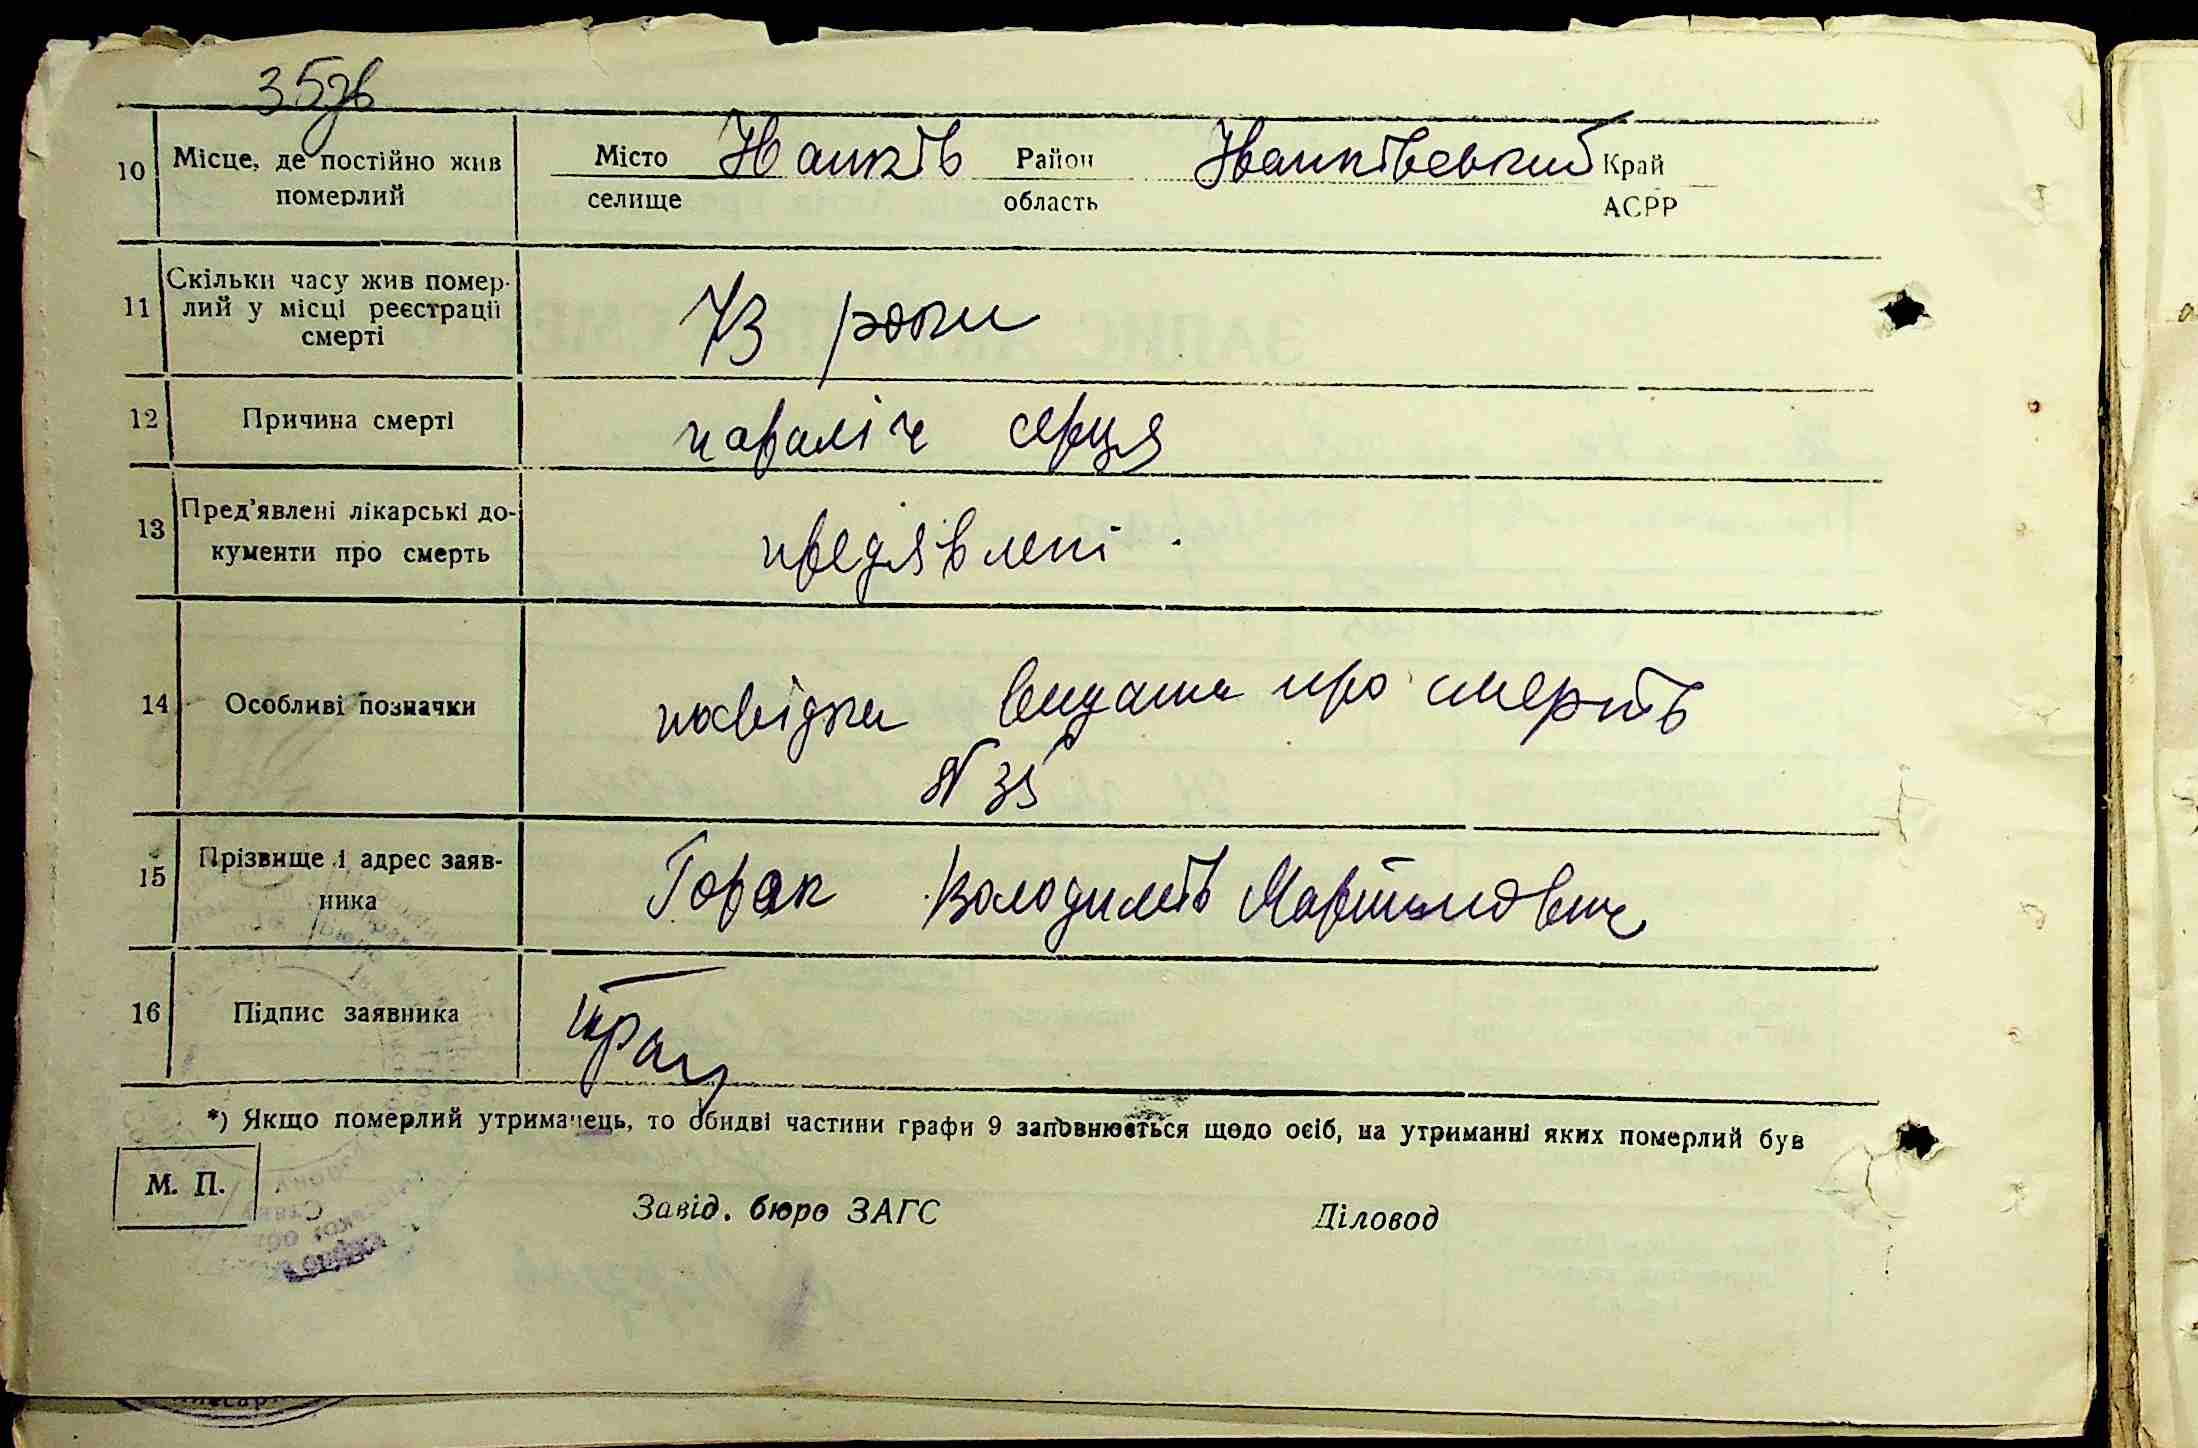 35зв
10 Місце, де постійно жив померлий Місто селище Іванків Район область Іванківський Край АСРР
11 Скільки часу жив померлий у місці реєстрації смерті 73 роки
12 Причина смерті параліч серця
13 Пред'явлені лікарські документи про смерть предявлені
14 Особливі позначки посвідка видана про смерть
N 35
15 Прізвище і адрес заявника Горак Володимір Мартинович
16 Підпис заявника
*) Якщо померлий утриманець, то обидві частини графи 9 заповнюється щодо осіб, на утриманні яких померлий був
М. П.
Завід. бюро ЗАГС Діловод